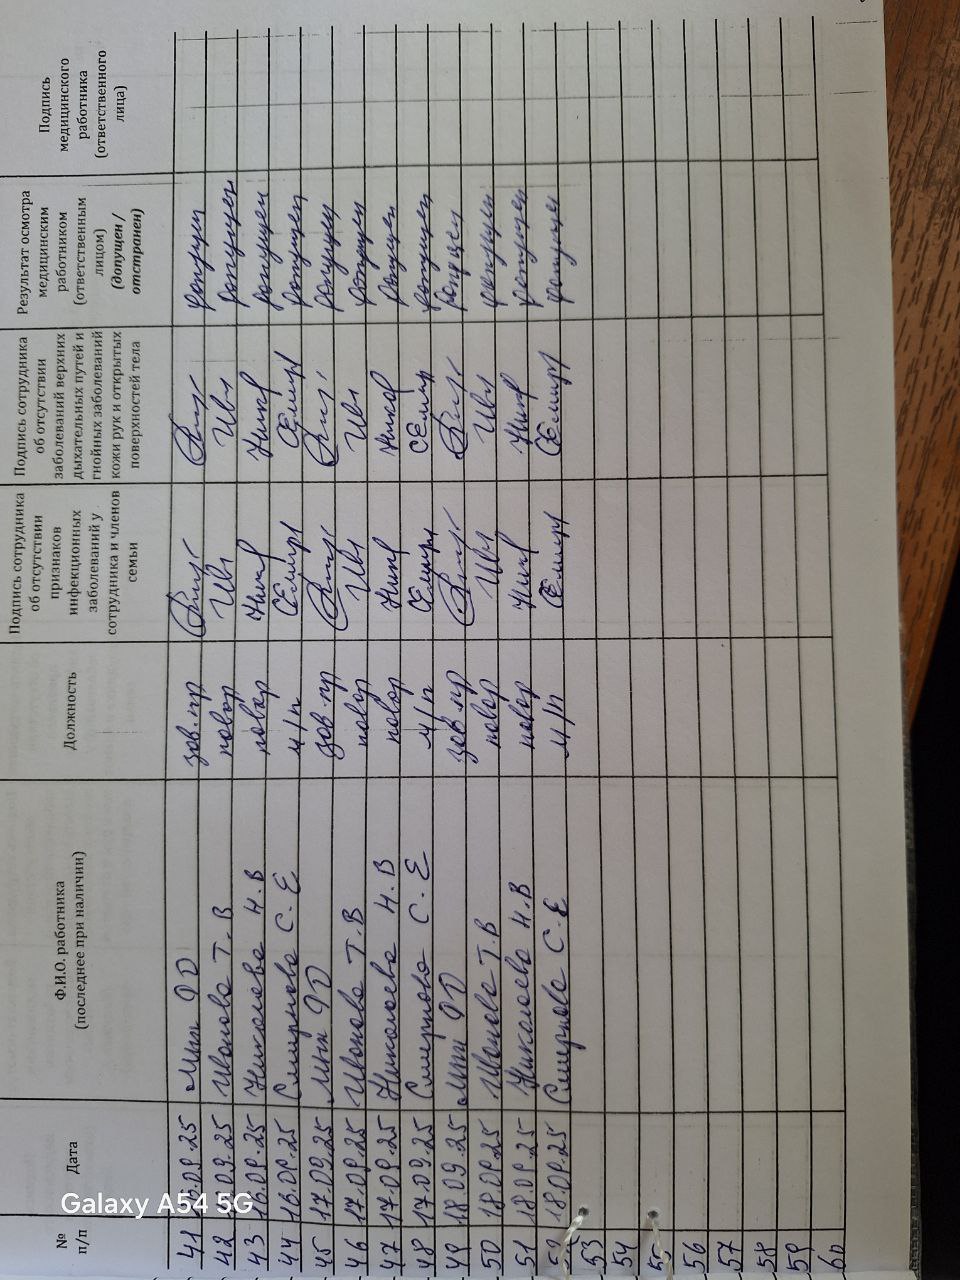 № п/п | Дата | Ф.И.О. работника (последнее при наличии) | Должность | Подпись сотрудника об отсутствии признаков инфекционных заболеваний у сотрудника и членов семьи | Подпись сотрудника об отсутствии заболеваний верхних дыхательных путей и гнойных заболеваний кожи рук и открытых поверхностей тела | Результат осмотра медицинским работником (ответственным лицом) (допущен / отстранен) | Подпись медицинского работника (ответственного лица)
41 .09.25 зав.пр допущен
42 .09.25 Иванова Т.В повар Ив допущен
43 16.09.25 Николаева Н.В повар Ник допущен
44 16.09.25 Смирнова С.Е м/п Смир допущен
45 17.09.25 зав.пр допущен
46 17.09.25 Иванова Т.В повар Ив допущен
47 17.09.25 Николаева Н.В повар Ник допущен
48 17.09.25 Смирнова С.Е м/п Смир допущен
49 18.09.25 зав.пр допущен
50 18.09.25 Иванова Т.В повар Ив допущен
51 18.09.25 Николаева Н.В повар Ник допущен
52 18.09.25 Смирнова С.Е м/п Смир допущен
53
54
55
56
57
58
59
60
Galaxy A54 5G